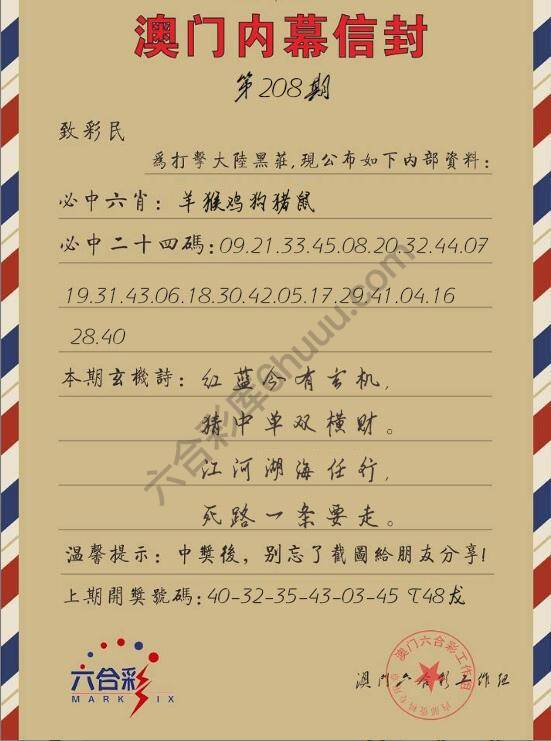 澳门内幕信封
第208期
致彩民
為打擊大陸黑莊,現公布如下内部資料:
必中六肖: 羊猴鸡狗猪鼠
必中二十四碼:09.21.33.45.08.20.32.44.07
19.31.43.06.18.30.42.05.17.29.41.04.16
28.40
本期玄機詩: 红蓝今有玄机,
猜中单双横财。
江河湖海任行,
死路一条要走。
温馨提示: 中獎後, 别忘了截圖給朋友分享!
上期開獎號碼:40-32-35-43-03-45 T48龙
六合彩
MARK SIX
澳门六合彩工作组
澳门六合彩工作组
六合彩库6huuu.com